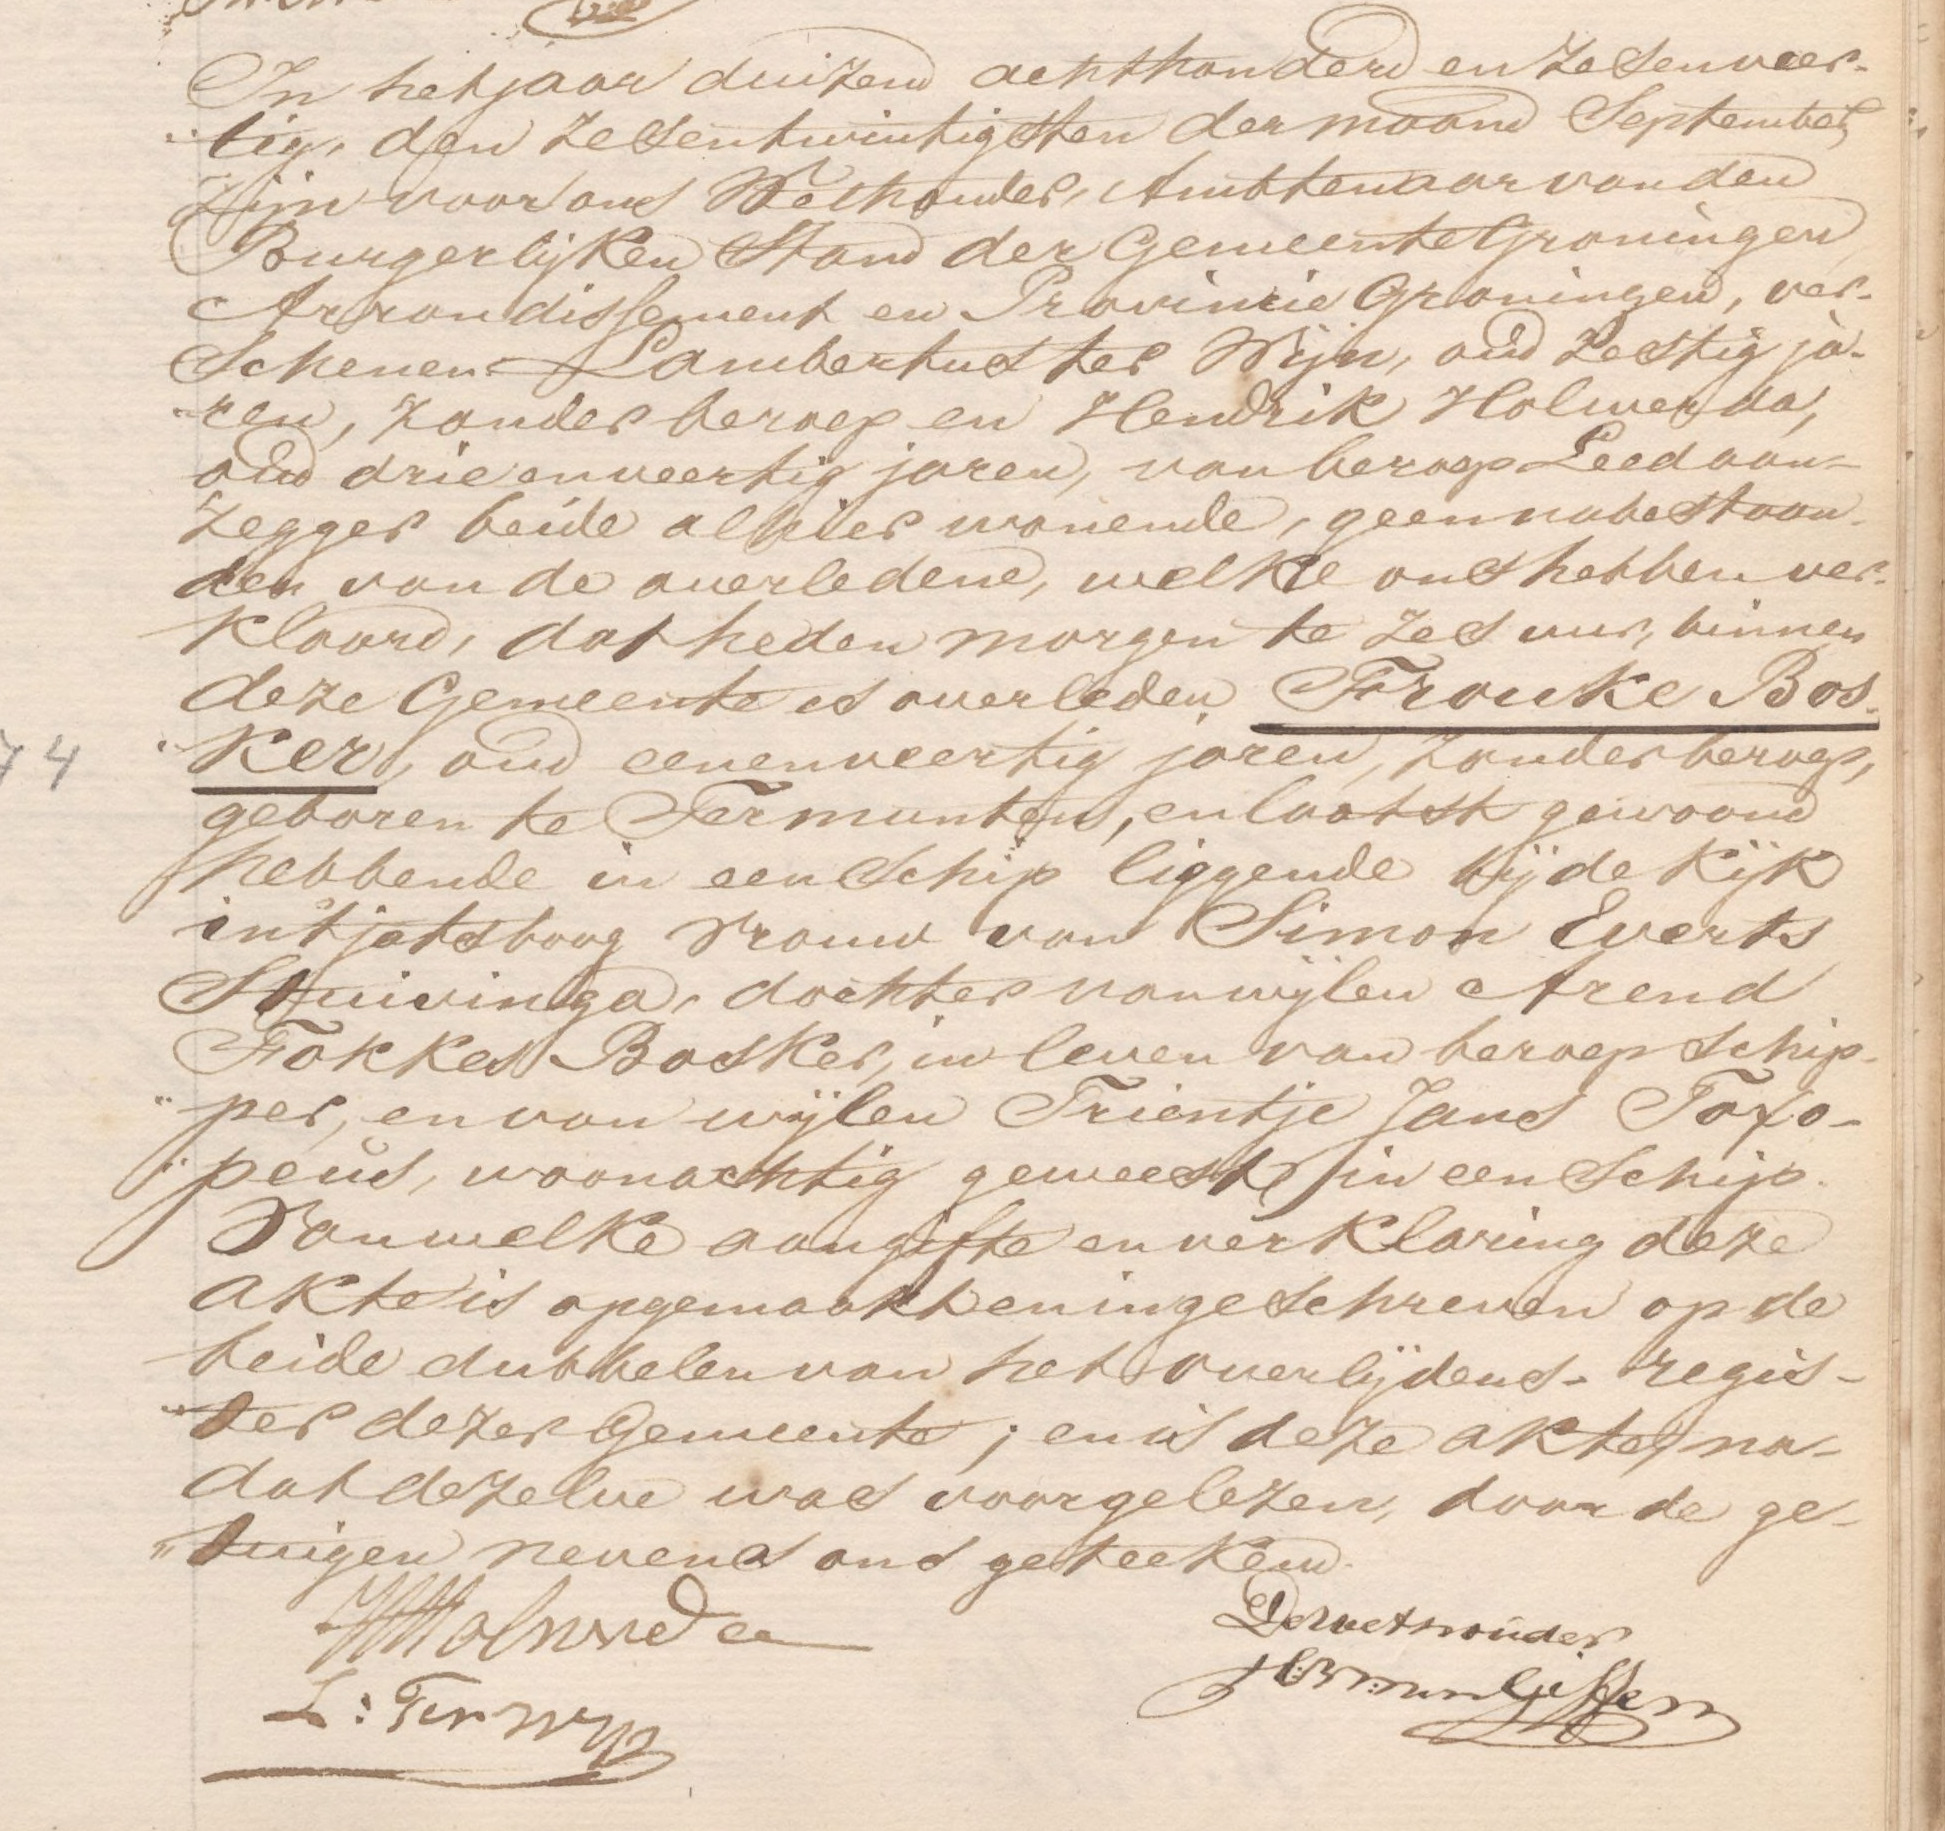 In het jaar duizend achthonderd en zesenveer-
tig, den zesentwintigsten der maand September,
zijn voor ons Wethouder, Ambtenaar van den
Burgerlijken Stand der Gemeente Groningen
Arrondissement en Provincie Groningen, ver-
schenen Lambertus ter Wijn, oud zestig ja-
ren, zonder beroep en Hendrik Holwerda,
oud drie en veertig jaren, van beroep Leedaan-
zegger beide alhier wonende, geen nabestaan-
den van de overledene, welke ons hebben ver-
klaard, dat heden morgen te zes uur, binnen
deze Gemeente is overleden Frouke Bos-
ker, oud eenenveertig jaren, zonder beroep,
geboren te Termunten, en laatst gewoond
hebbende in een Schip liggende bij de Kijk
in 't jatsboog Vrouw van Simon Everts
Stuivinga, dochter van wijlen Arend
Fokkes Bosker, in leven van beroep schip-
per, en van wijlen Trientje Jans Toxo-
peüs, woonachtig geweest in een Schip.
Van welke aangifte en verklaring deze
akte is opgemaakt en ingeschreven op de
beide dubbelen van het overlijdens-regis-
ter dezer Gemeente; en is deze akte, na-
dat dezelve was voorgelezen, door de ge-
tuigen nevens ons geteekend.
HHolwerda
De Wethouder
L: Ter Wijn
74